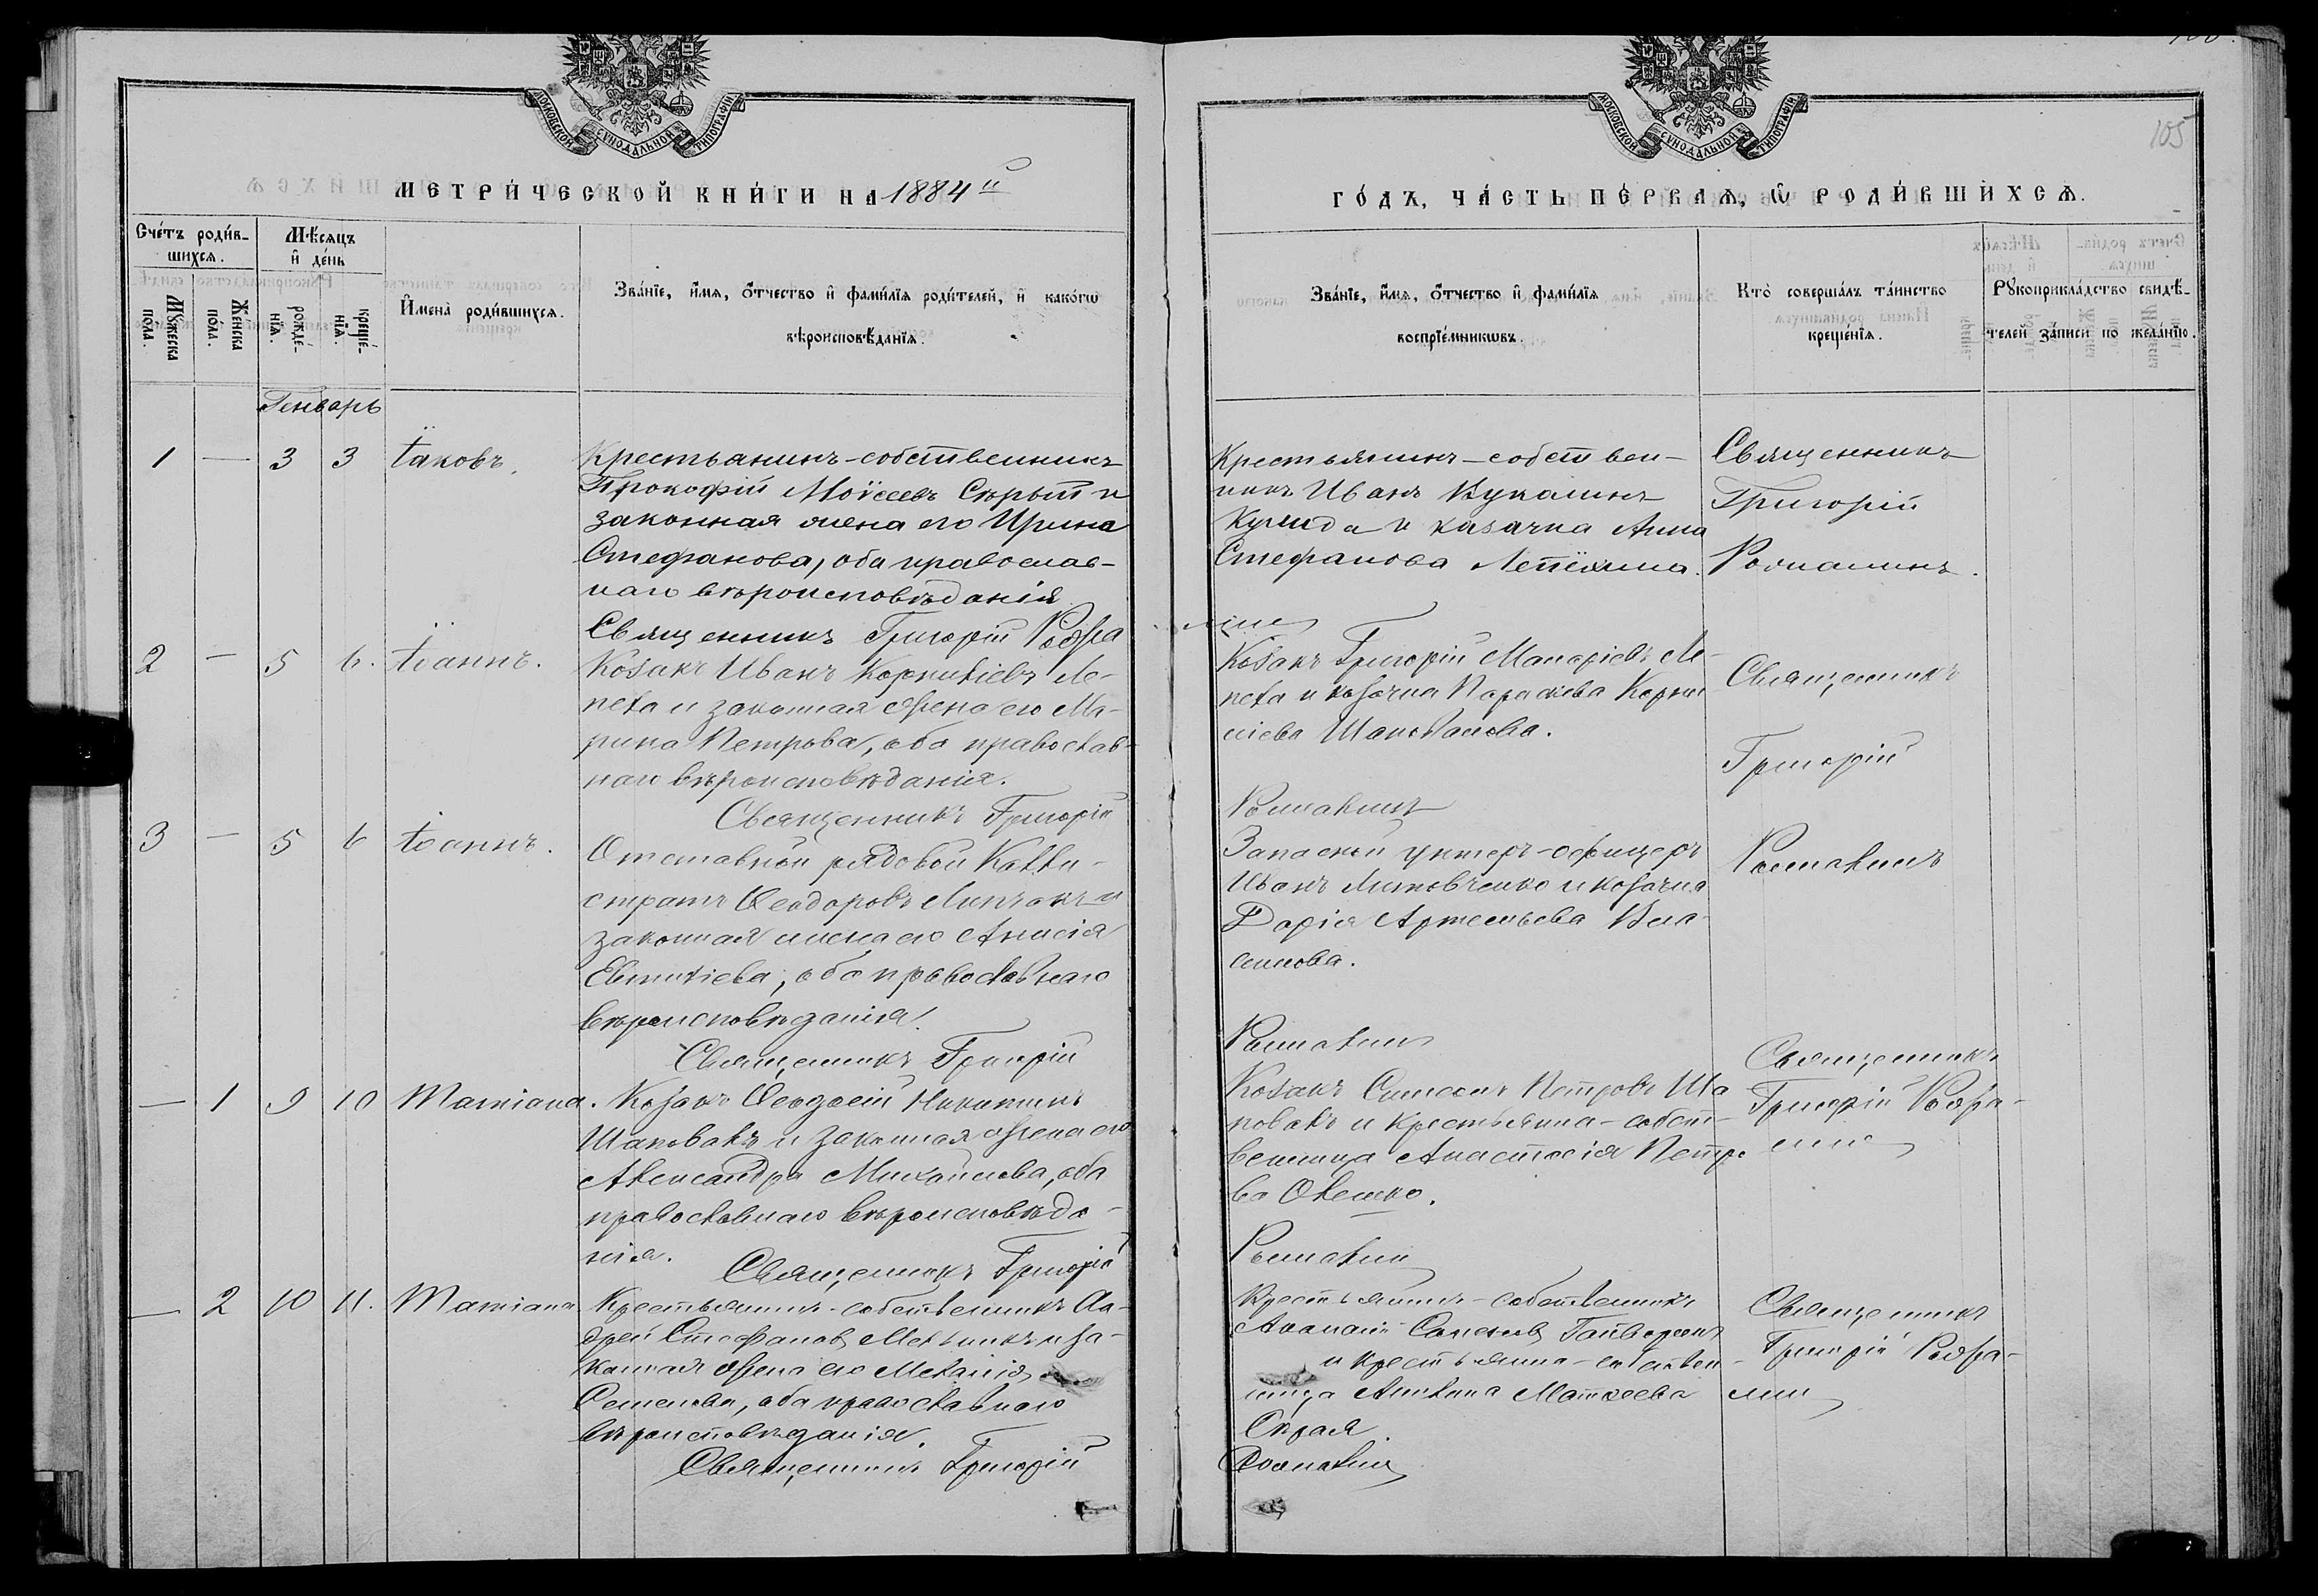 МОСКОВСКОЙ СѴНОДАЛЬНОЙ ТИПОГРАФІИ
МЕТРИ́ЧЕСКОЙ КНИ́ГИ НА 1884 й
Сче́тъ роди́в-
шихсѧ.
Мѣ́сѧцъ
и҆ де́нь
Мꙋ́жеска
по́ла.
Же́нска
по́ла.
рожде́-
нїѧ.
креще́-
нїѧ.
И҆мена̀ роди́вшихсѧ.
Зва́нїе, и҆́мѧ, ѻ҆́тчество и҆ фами́лїѧ роди́телей, и҆ како́гѡ
вѣроисповѣ́данїѧ.
Генварь
1 — 3 3 Іаковъ.
Крестьянинъ-собственникъ
Прокофій Моѵсеевъ Сѣрый и
законная жена его Ирина
Стефанова, оба православ-
наго вѣроисповѣданія
Священникъ Григорій
2 — 5 6. Іоаннъ.
Козакъ Иванъ Корниліевъ Ле-
пеха и законная жена его Ма-
рина Петрова, оба православ-
наго вѣроисповѣданія.
Священникъ Григорій
3 — 5 6 Іоаннъ.
Отставной рядовой Кали-
стратъ Ѳеодоровъ и
законная жена его Анисія
оба православнаго
вѣроисповѣданія.
Священникъ Григорій
— 1 9 10 Татіана.
Козакъ Ѳеодосій Никитинъ
Шаповалъ и законная жена его
Александра Михайлова, оба
православнаго вѣроисповѣда-
нія.
Священникъ Григорій
— 2 10 11. Татіана
Крестьянинъ-собственникъ Ан-
дрей Стефановъ Мельникъ и за-
конная жена его Меланія
Семенова, оба православнаго
вѣроисповѣданія.
Священникъ Григорій
МОСКОВСКОЙ СѴНОДАЛЬНОЙ ТИПОГРАФІИ
105
ГО́ДЪ, ЧА́СТЬ ПЕ́РВАѦ, Ѡ҆ РОДИ́ВШИХСѦ.
Зва́нїе, и҆́мѧ, ѻ҆́тчество и҆ фами́лїѧ
воспрїе́мникѡвъ.
Кто̀ соверша́лъ та́инство
креще́нїѧ.
Рꙋкоприкла́дство свидѣ́-
телей за́писи по жела́нїю.
Крестьянинъ-собствен-
никъ Иванъ
и казачка Анна
Стефанова Лепёхина.
Священникъ
Григорій
Козакъ Григорій Макаріевъ Ле-
пеха и козачка Параскева Корни-
ліева Шаповалова.
Священникъ
Григорій
Запасной унтеръ-офицеръ
Иванъ Литовченко и козачка
Дарія Артемьева Вла-
сикова.
Козакъ Симеонъ Петровъ Ша
повалъ и крестьянка-собст-
венница Анастасія Петро
ва
Священникъ
Григорій
Крестьянинъ-собственникъ
Аѳанасій
и крестьянка-собствен-
ница Акилина Матѳеева
Сѣрая.
Священникъ
Григорій